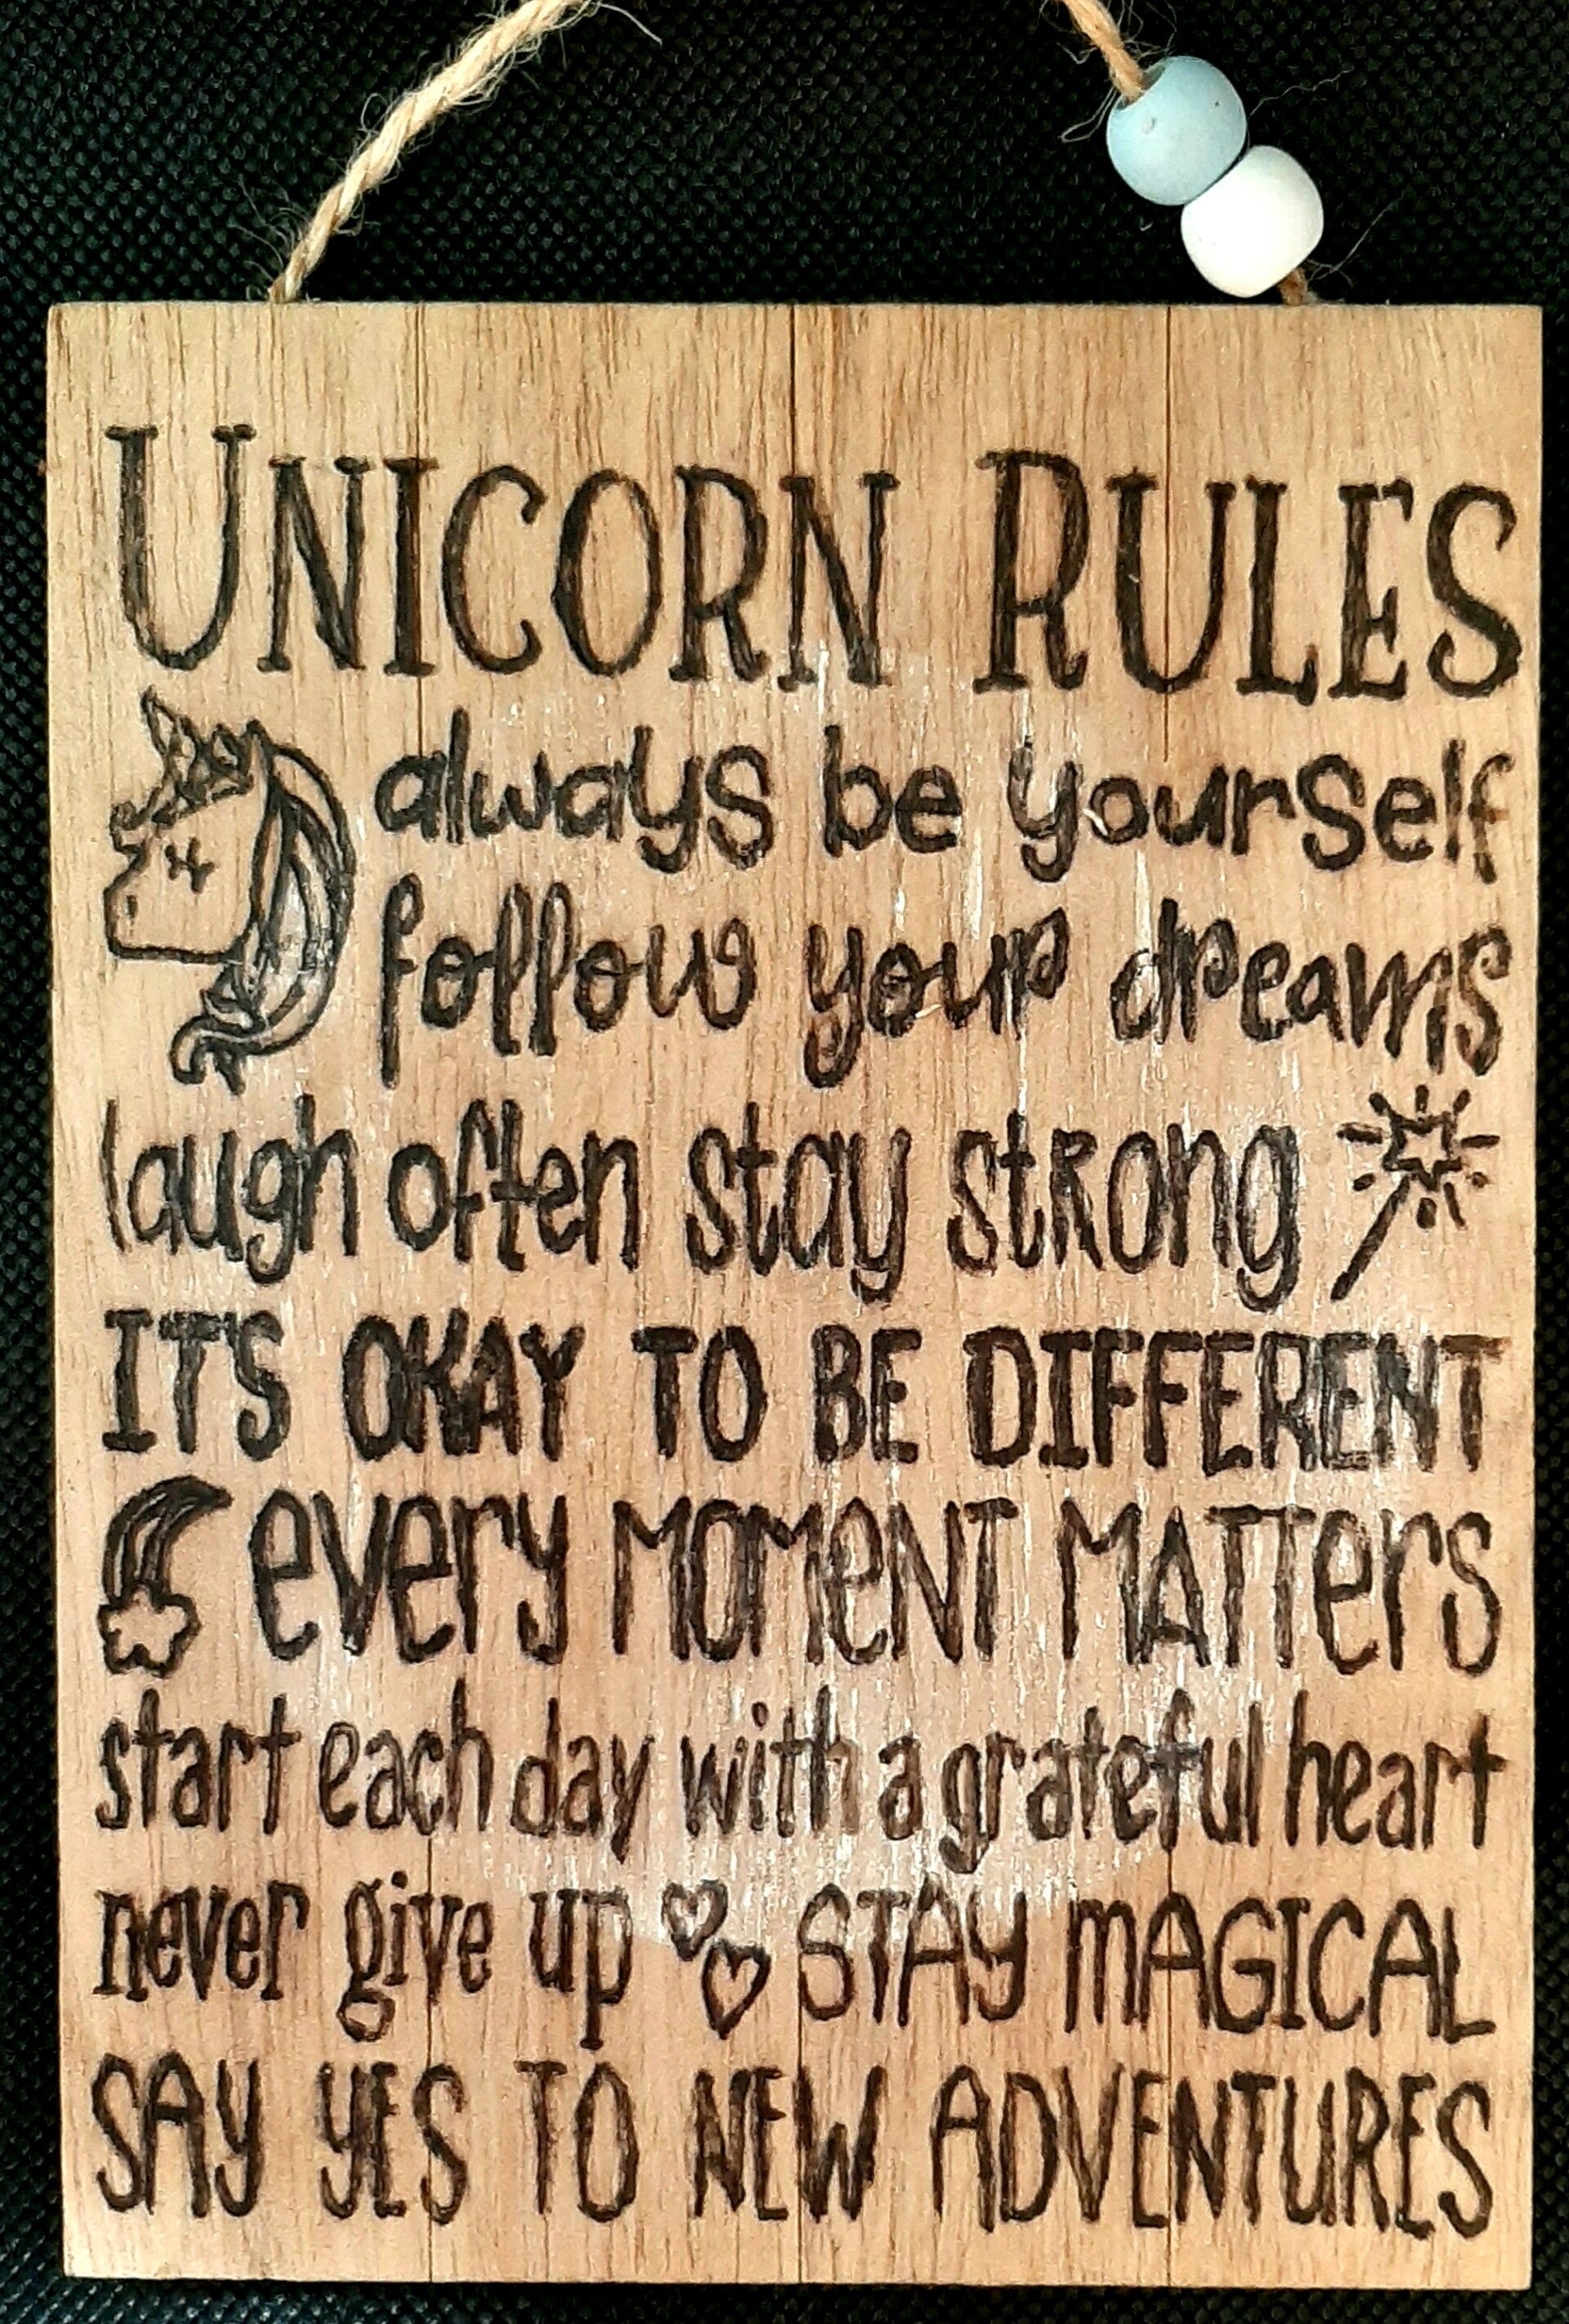 UNICORN RULES
always be yourself
follow your dreams
laugh often stay stRong
IT'S OKAY TO BE DIFFERENT
every MOMeNT MATTerS
start each day with a grateful heart
never give up STAY mAGICAL
SAY YES TO NEW ADVENTURES